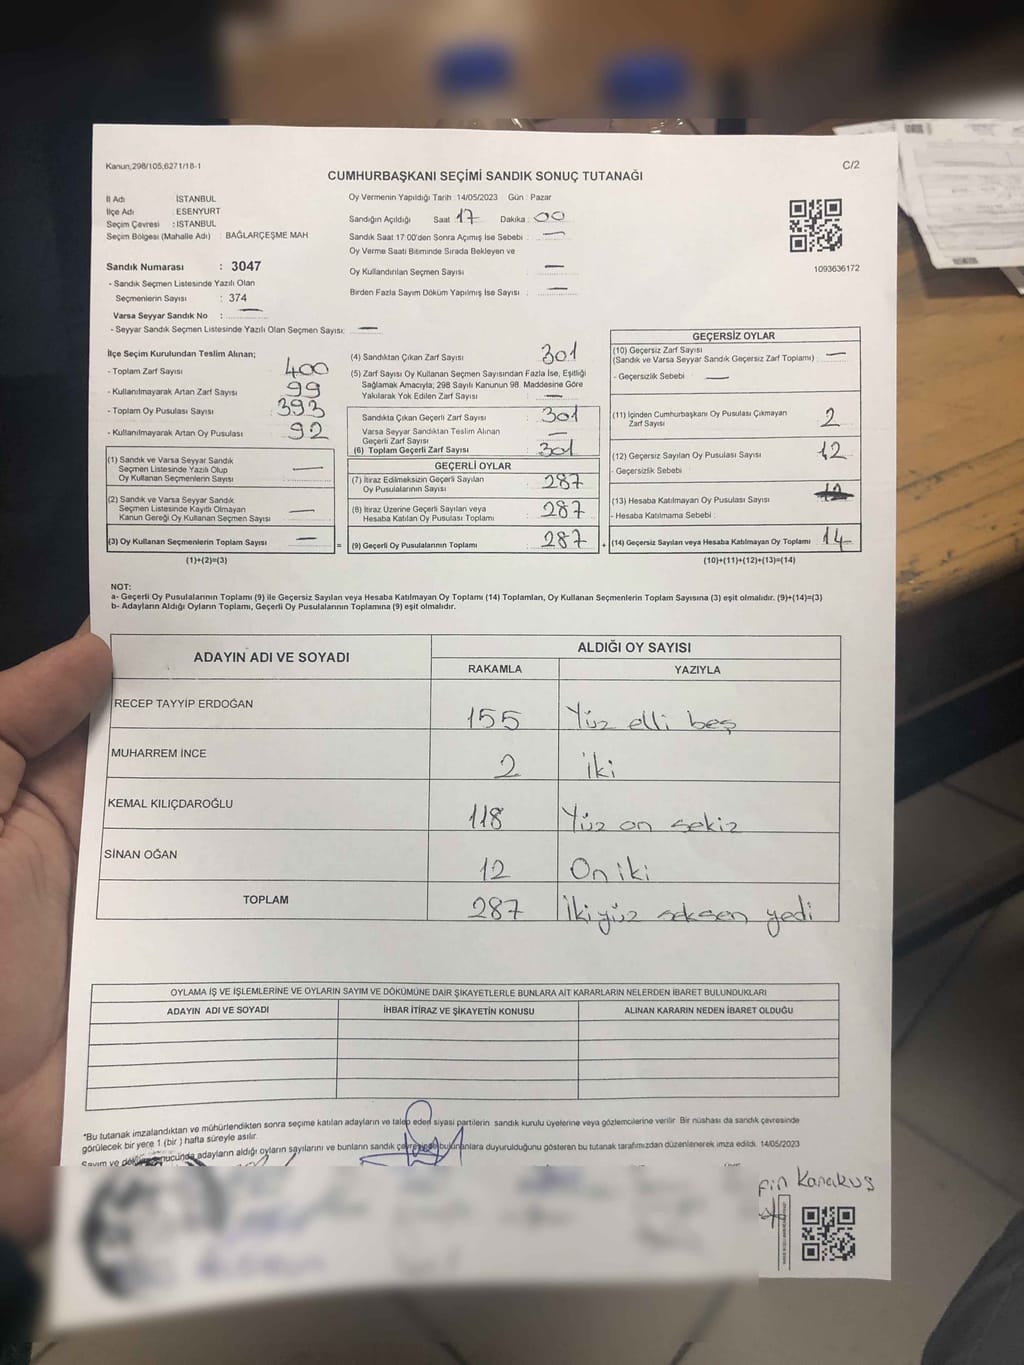 Kanun;298/105,6271/18-1
C/2
CUMHURBAŞKANI SEÇİMİ SANDIK SONUÇ TUTANAĞI
İl Adı : İSTANBUL
İlçe Adı : ESENYURT
Seçim Çevresi : İSTANBUL
Seçim Bölgesi (Mahalle Adı) : BAĞLARÇEŞME MAH
Sandık Numarası : 3047
- Sandık Seçmen Listesinde Yazılı Olan
Seçmenlerin Sayısı : 374
Varsa Seyyar Sandık No : —
- Seyyar Sandık Seçmen Listesinde Yazılı Olan Seçmen Sayısı: —
Oy Vermenin Yapıldığı Tarih :14/05/2023 Gün : Pazar
Sandığın Açıldığı Saat : 17 Dakika : 00
Sandık Saat 17:00'den Sonra Açımış İse Sebebi : —
Oy Verme Saati Bitiminde Sırada Bekleyen ve
Oy Kullandırılan Seçmen Sayısı : —
Birden Fazla Sayım Döküm Yapılmış İse Sayısı : —
1093636172
İlçe Seçim Kurulundan Teslim Alınan;
- Toplam Zarf Sayısı : 400
- Kullanılmayarak Artan Zarf Sayısı : 99
- Toplam Oy Pusulası Sayısı : 393
- Kullanılmayarak Artan Oy Pusulası : 92
(1) Sandık ve Varsa Seyyar Sandık
Seçmen Listesinde Yazılı Olup
Oy Kullanan Seçmenlerin Sayısı —
(2) Sandık ve Varsa Seyyar Sandık
Seçmen Listesinde Kayıtlı Olmayan
Kanun Gereği Oy Kullanan Seçmen Sayısı —
(3) Oy Kullanan Seçmenlerin Toplam Sayısı —
(1)+(2)=(3)
(4) Sandıktan Çıkan Zarf Sayısı : 301
(5) Zarf Sayısı Oy Kullanan Seçmen Sayısından Fazla İse, Eşitliği
Sağlamak Amacıyla; 298 Sayılı Kanunun 98. Maddesine Göre
Yakılarak Yok Edilen Zarf Sayısı : —
Sandıkta Çıkan Geçerli Zarf Sayısı : 301
Varsa Seyyar Sandıktan Teslim Alınan
Geçerli Zarf Sayısı —
(6) Toplam Geçerli Zarf Sayısı : 301
GEÇERLİ OYLAR
(7) İtiraz Edilmeksizin Geçerli Sayılan
Oy Pusulalarının Sayısı : 287
(8) İtiraz Üzerine Geçerli Sayılan veya
Hesaba Katılan Oy Pusulası Toplamı : 287
= (9) Geçerli Oy Pusulalarının Toplamı : 287
GEÇERSİZ OYLAR
(10) Geçersiz Zarf Sayısı
(Sandık ve Varsa Seyyar Sandık Geçersiz Zarf Toplamı) : —
- Geçersizlik Sebebi : —
(11) İçinden Cumhurbaşkanı Oy Pusulası Çıkmayan
Zarf Sayısı : 2
(12) Geçersiz Sayılan Oy Pusulası Sayısı : 12
- Geçersizlik Sebebi :
(13) Hesaba Katılmayan Oy Pusulası Sayısı :
- Hesaba Katılmama Sebebi :
+ (14) Geçersiz Sayılan veya Hesaba Katılmayan Oy Toplamı : 14
(10)+(11)+(12)+(13)=(14)
NOT:
a- Geçerli Oy Pusulalarının Toplamı (9) ile Geçersiz Sayılan veya Hesaba Katılmayan Oy Toplamı (14) Toplamları, Oy Kullanan Seçmenlerin Toplam Sayısına (3) eşit olmalıdır. (9)+(14)=(3)
b- Adayların Aldığı Oyların Toplamı, Geçerli Oy Pusulalarının Toplamına (9) eşit olmalıdır.
ADAYIN ADI VE SOYADI
ALDIĞI OY SAYISI
RAKAMLA YAZIYLA
RECEP TAYYİP ERDOĞAN 155 Yüz elli beş
MUHARREM İNCE 2 iki
KEMAL KILIÇDAROĞLU 118 Yüz on sekiz
SİNAN OĞAN 12 On iki
TOPLAM 287 İkiyüz seksen yedi
OYLAMA İŞ VE İŞLEMLERİNE VE OYLARIN SAYIM VE DÖKÜMÜNE DAİR ŞİKAYETLERLE BUNLARA AİT KARARLARIN NELERDEN İBARET BULUNDUKLARI
ADAYIN ADI VE SOYADI İHBAR İTİRAZ VE ŞİKAYETİN KONUSU ALINAN KARARIN NEDEN İBARET OLDUĞU
*Bu tutanak imzalandıktan ve mühürlendikten sonra seçime katılan adayların ve talep eden siyasi partilerin sandık kurulu üyelerine veya gözlemcilerine verilir. Bir nüshası da sandık çevresinde
görülecek bir yere 1 (bir ) hafta süreyle asılır.
Sayım ve döküm sonucunda adayların aldığı oyların sayılarını ve bunların sandık çevresinde bulunanlara duyurulduğunu gösteren bu tutanak tarafımızdan düzenlenerek imza edildi. 14/05/2023
Karakuş